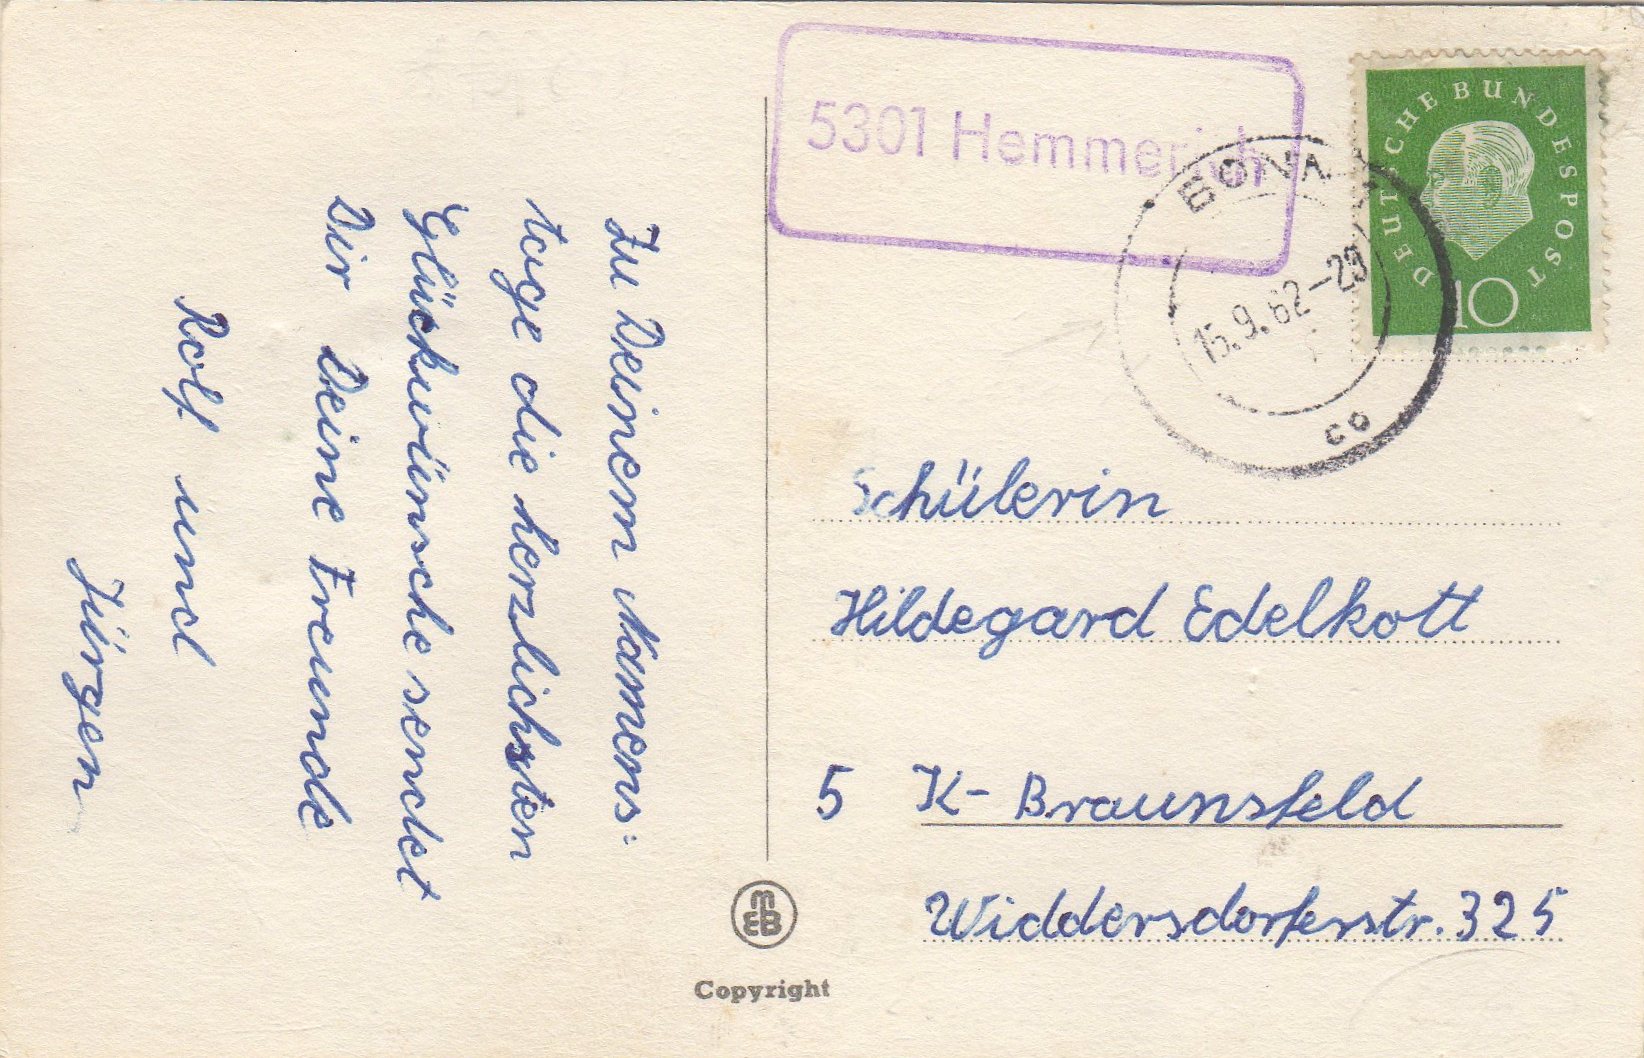 Zu Deinem Namens-
tage die herzlichsten
Glückwünsche sendet
Dir Deine Freunde
Rolf und
Jürgen
5301 Hemmerich
BONN
15.9.62-20
co
DEUTSCHE BUNDESPOST
10
Schülerin
Hildegard Edelkott
5 K- Braunsfeld
Widdersdorferstr. 325
MEB
Copyright